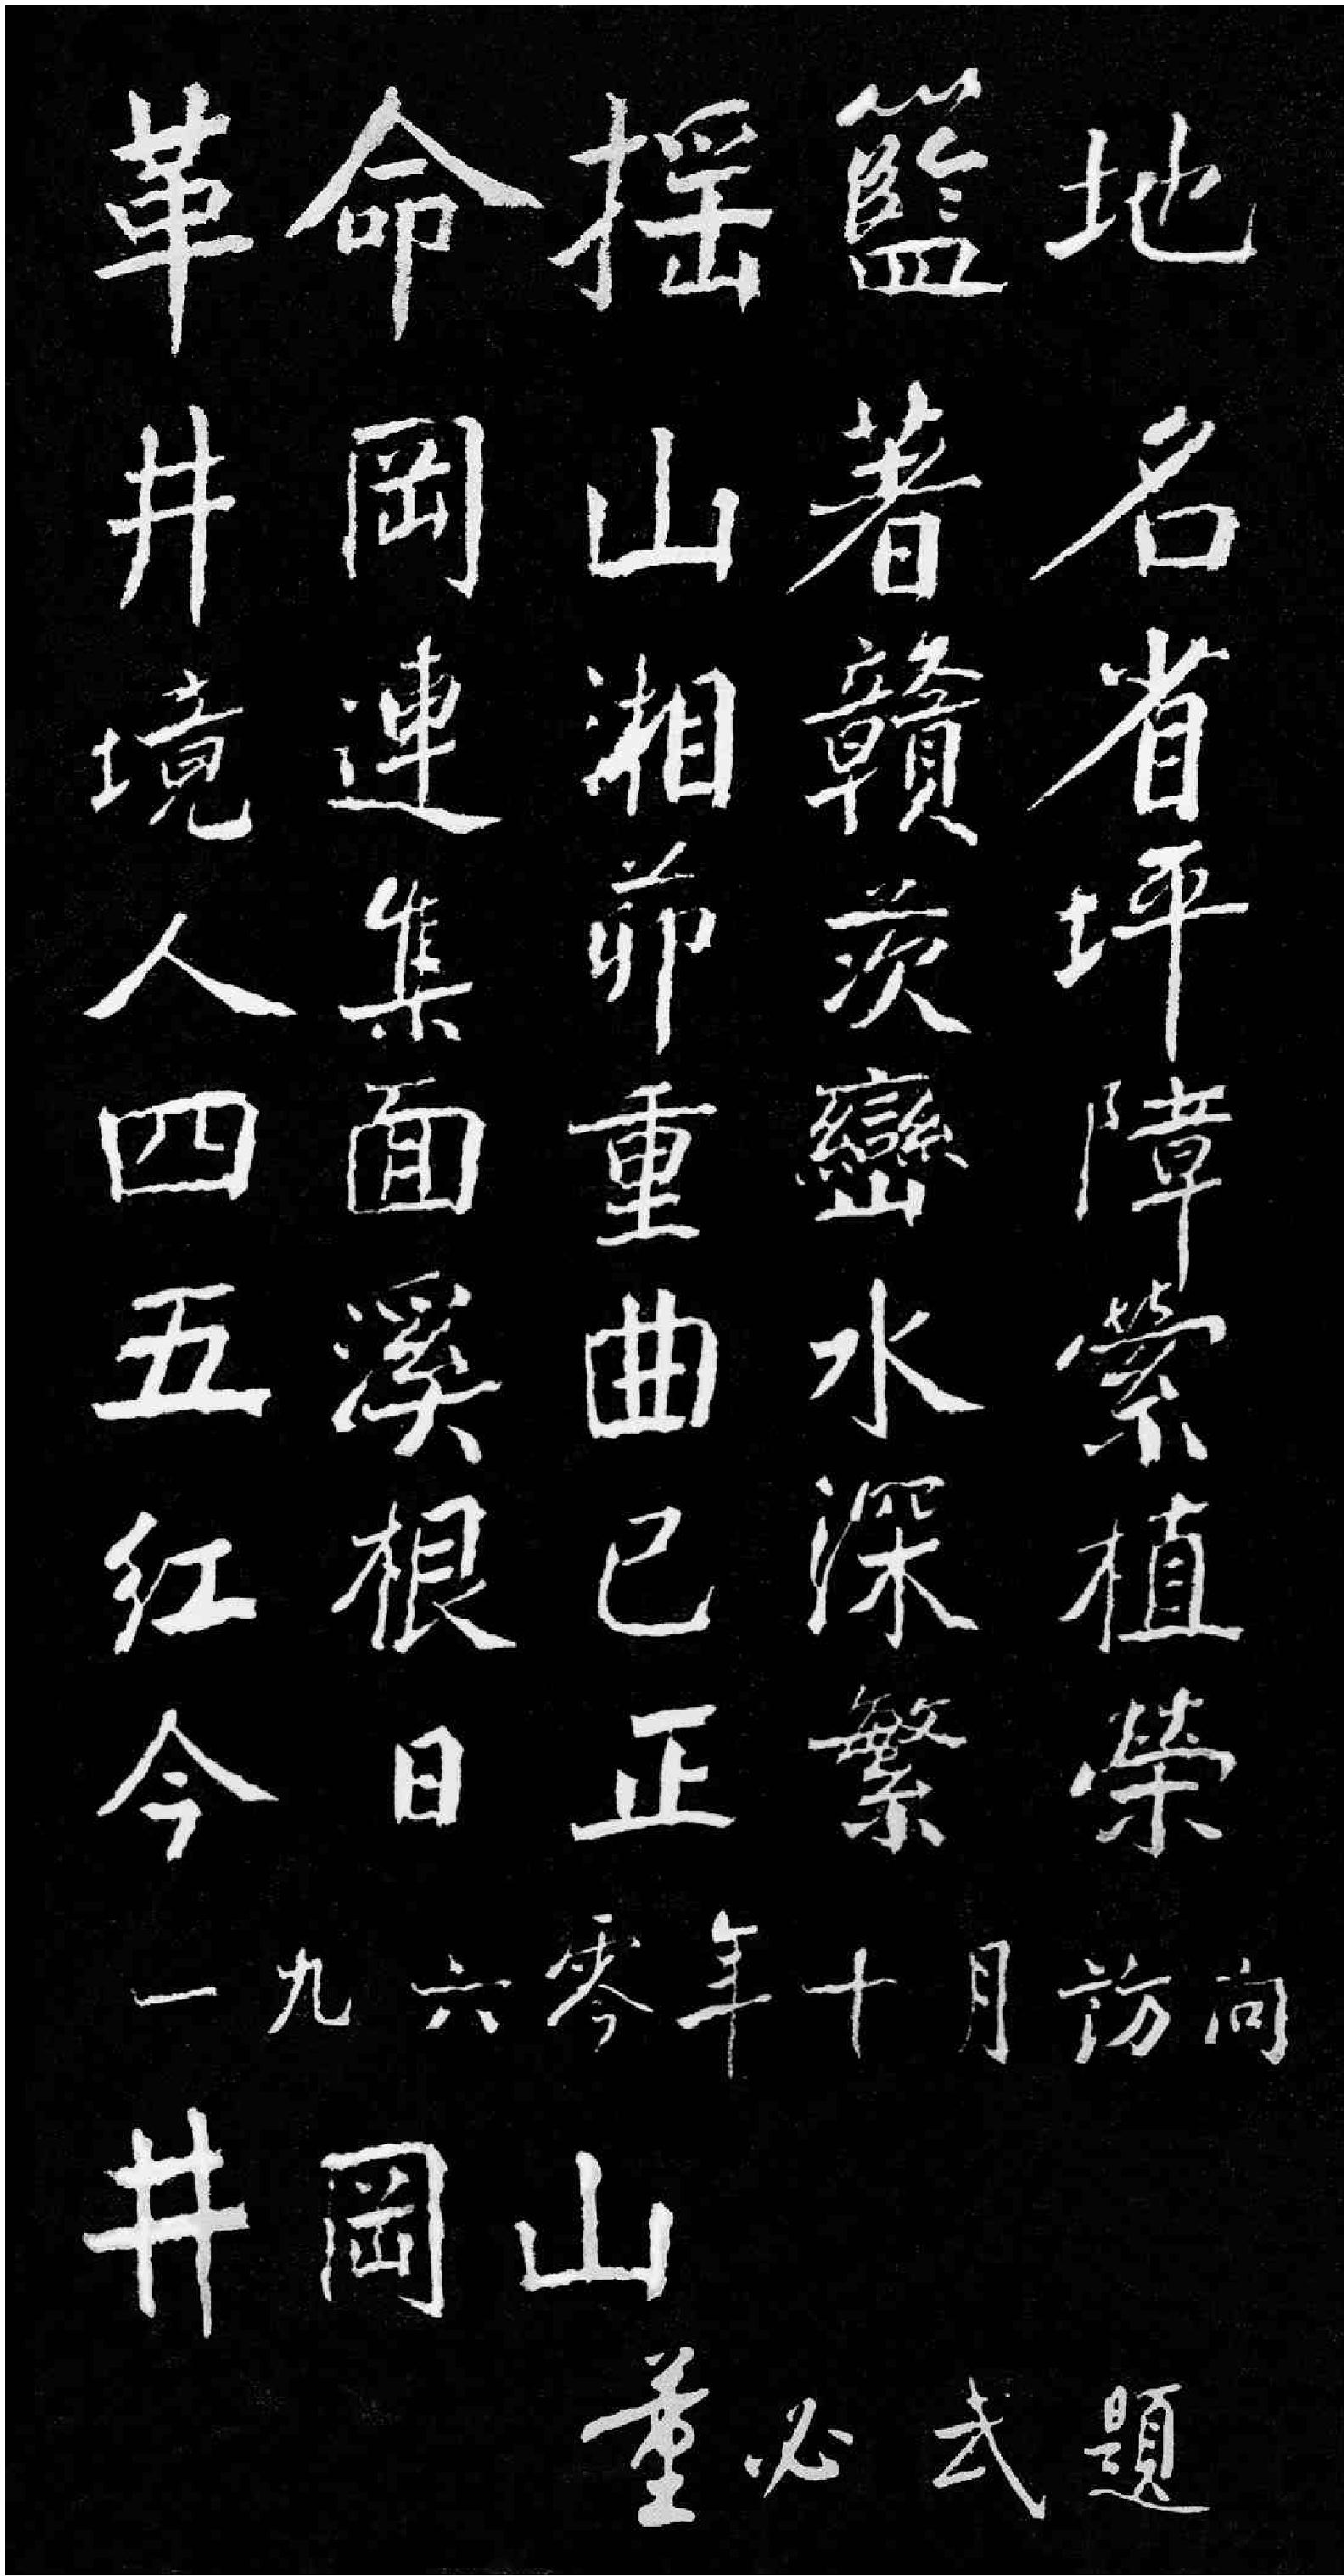 革命摇籃地
井岡山著名
境連湘贛省
人集茆茨坪
四面重巒障
五溪曲水縈
红根已深植
今日正繁榮
一九六零年十月訪问
井岡山
董必武題